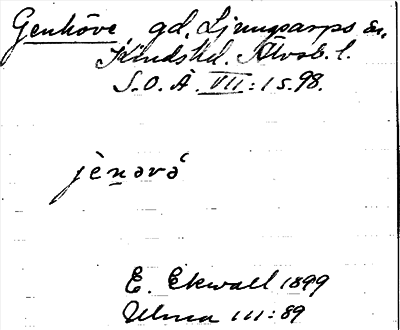 Genhöve, gd, Ljungsarps sn,
Kinds hd. Älvsb. l.
S.O.Ä. VII:1 s. 98.
jènəvə́
E. Ekwall 1899
Ulma III:89